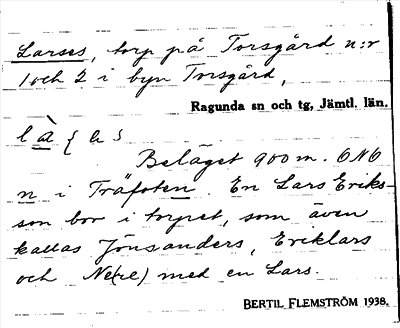 Larses, torp på Torsgård n:r
1 och 2 i byn Torsgård,
Ragunda sn och tg, Jämtl. län.
Beläget 900 m. ONO
n i Träfoten. En Lars Eriks-
son bor i torpet, som även
kallas Jönsanders, Eriklars
och med en Lars.
BERTIL FLEMSTRÖM 1938.